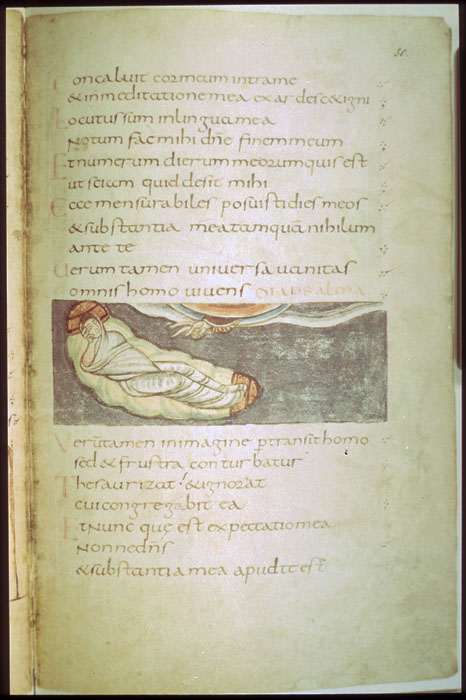 Concaluit cor meum intra me
& in meditatione mea exardesc& igni
Locutus sum in lingua mea
Notum fac mihi dn̄e finem meum
Et numerum dierum meorum quis est
ut sciam quid desit mihi
Ecce mensurabiles posuisti dies meos
& substantia mea tamquā nihilum
ante te
Uerum tamen uniuersa uanitas
omnis homo uiuens diapsalma
Verūtamen in imagine ptransit homo
sed & frustra conturbatur
Thesaurizat & ignorat
cui congregabit ea
Et nunc quę est expectatio mea
Nonne dn̄s
& substantia mea apud te est